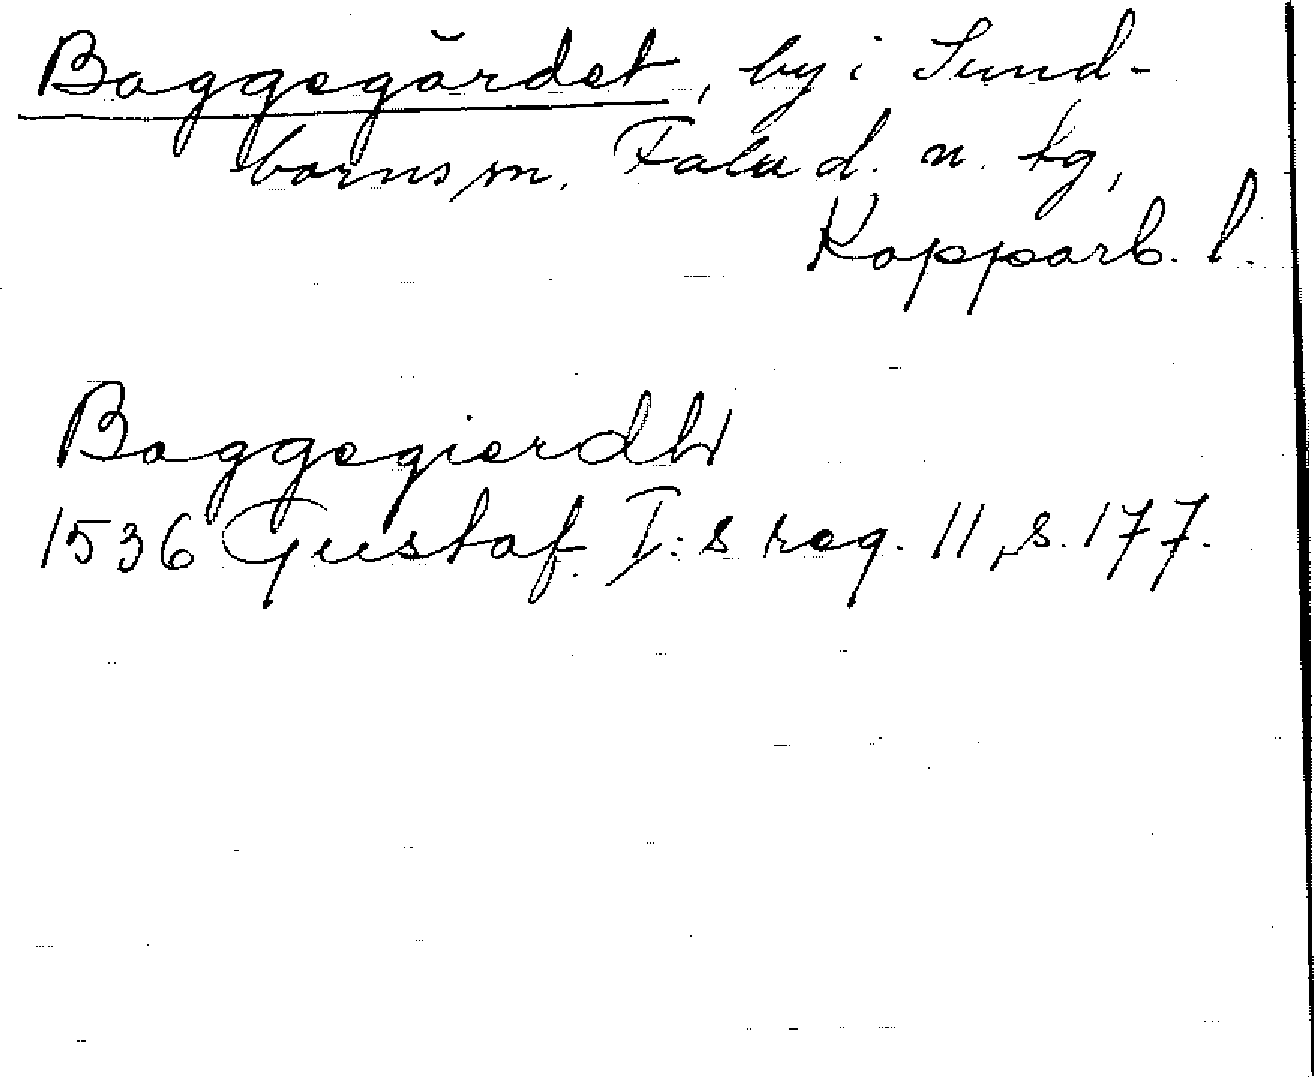 Baggegärdet, by i Sund-
borns sn. Falu d. n. tg,
Kopparb. l.
Baggegierdit
1536 Gustaf I:s reg. 11, s. 177.